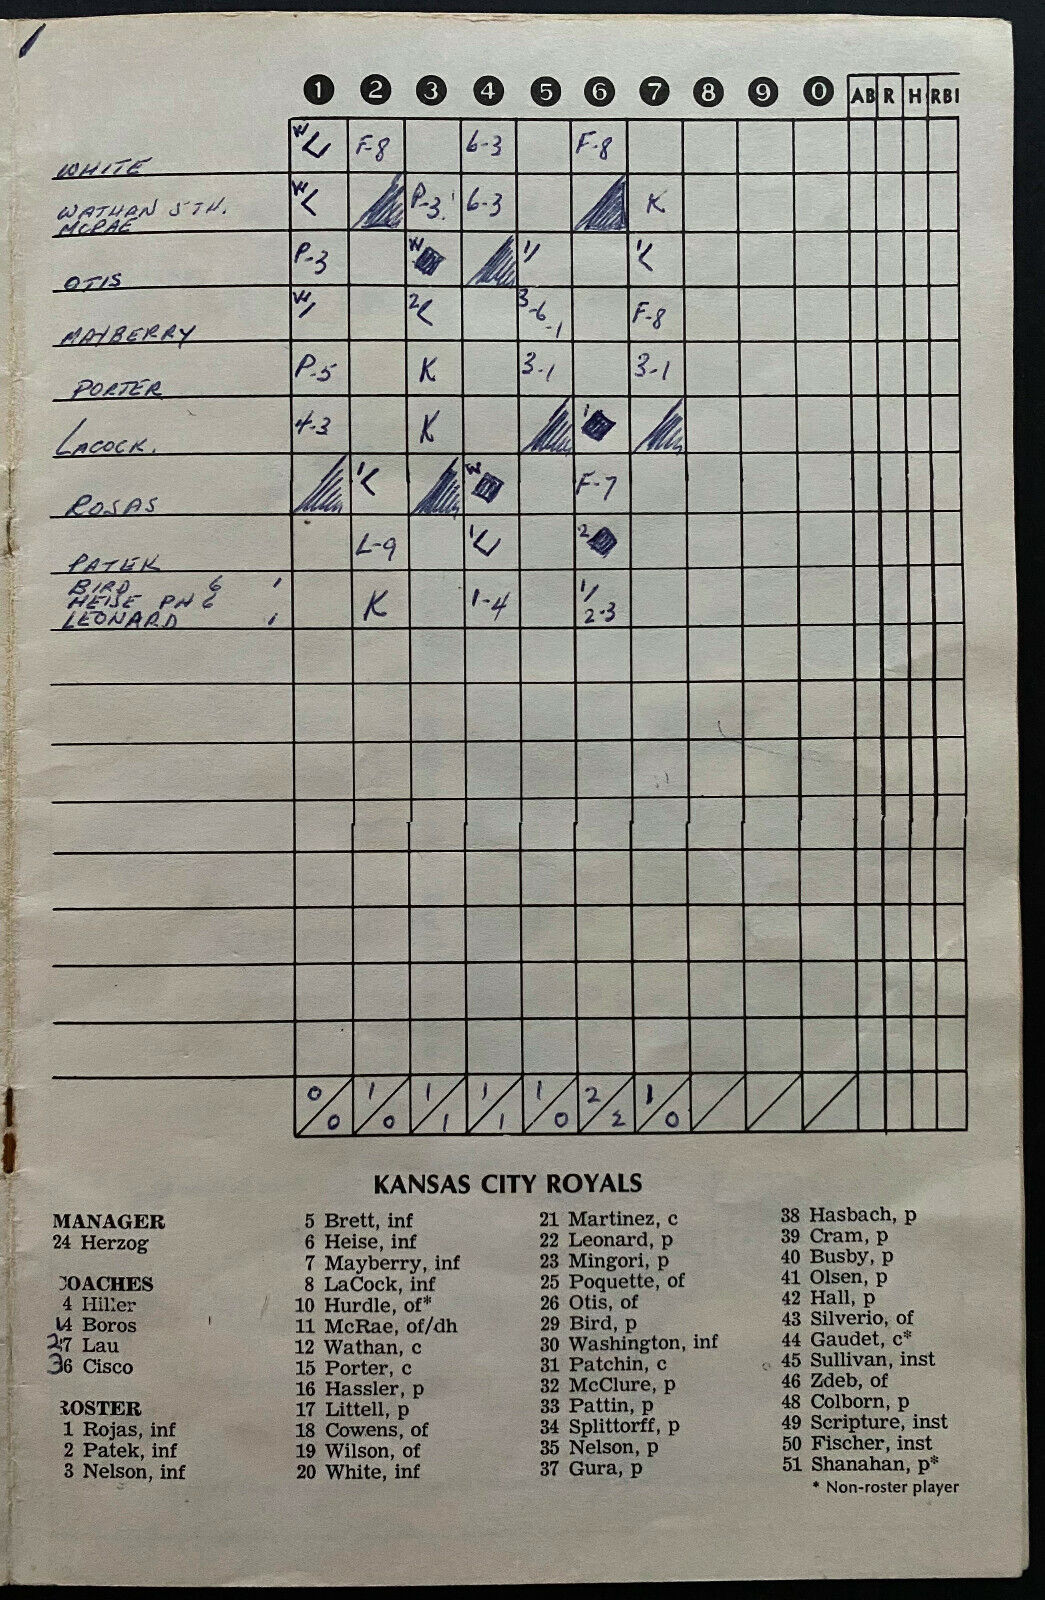 1 2 3 4 5 6 7 8 9 0 AB R H RBI
WHITE W F-8 6-3 F-8
WATHAN 5TH. W P-3 6-3 K
MCRAE
OTIS P-3 W 1/
MAYBERRY W 2 3-6-1 F-8
PORTER P-5 K 3-1 3-1
LACOCK. 4-3 K 1
ROJAS 1 W F-7
PATEK L-9 1 2
BIRD 6 1
HEISE PH 6 K 1-4 1/ 2-3
LEONARD 1
0/0 1/0 1/1 1/1 1/0 2/2 1/0
KANSAS CITY ROYALS
MANAGER
24 Herzog
COACHES
4 Hiller
14 Boros
27 Lau
36 Cisco
ROSTER
1 Rojas, inf
2 Patek, inf
3 Nelson, inf
5 Brett, inf
6 Heise, inf
7 Mayberry, inf
8 LaCock, inf
10 Hurdle, of*
11 McRae, of/dh
12 Wathan, c
15 Porter, c
16 Hassler, p
17 Littell, p
18 Cowens, of
19 Wilson, of
20 White, inf
21 Martinez, c
22 Leonard, p
23 Mingori, p
25 Poquette, of
26 Otis, of
29 Bird, p
30 Washington, inf
31 Patchin, c
32 McClure, p
33 Pattin, p
34 Splittorff, p
35 Nelson, p
37 Gura, p
38 Hasbach, p
39 Cram, p
40 Busby, p
41 Olsen, p
42 Hall, p
43 Silverio, of
44 Gaudet, c*
45 Sullivan, inst
46 Zdeb, of
48 Colborn, p
49 Scripture, inst
50 Fischer, inst
51 Shanahan, p*
* Non-roster player